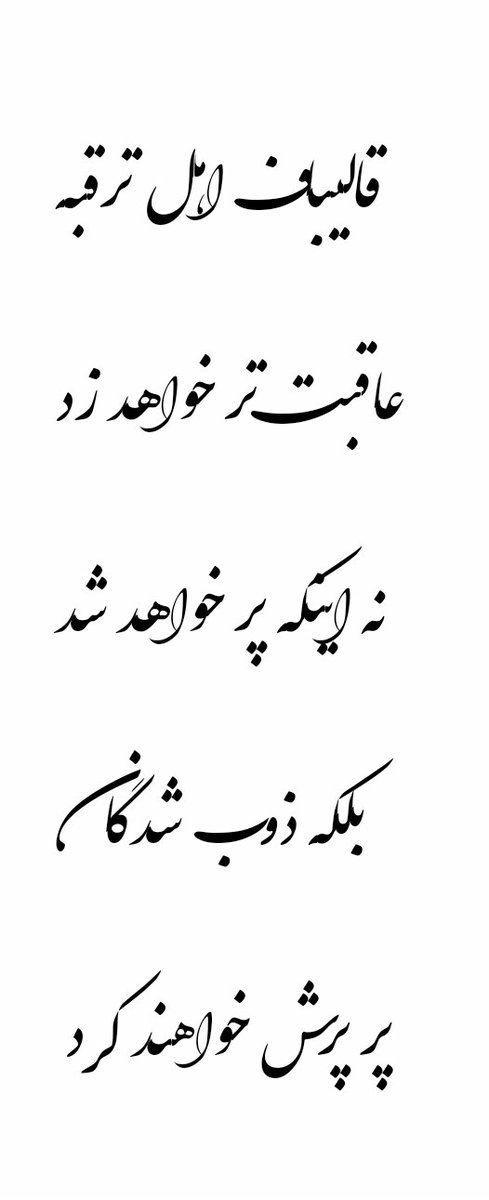 قالیباف اهل ترقبه
عاقبت تر خواهد زد
نه اینکه پر خواهد شد
بلکه ذوب شدگان
پر پرش خواهند کرد